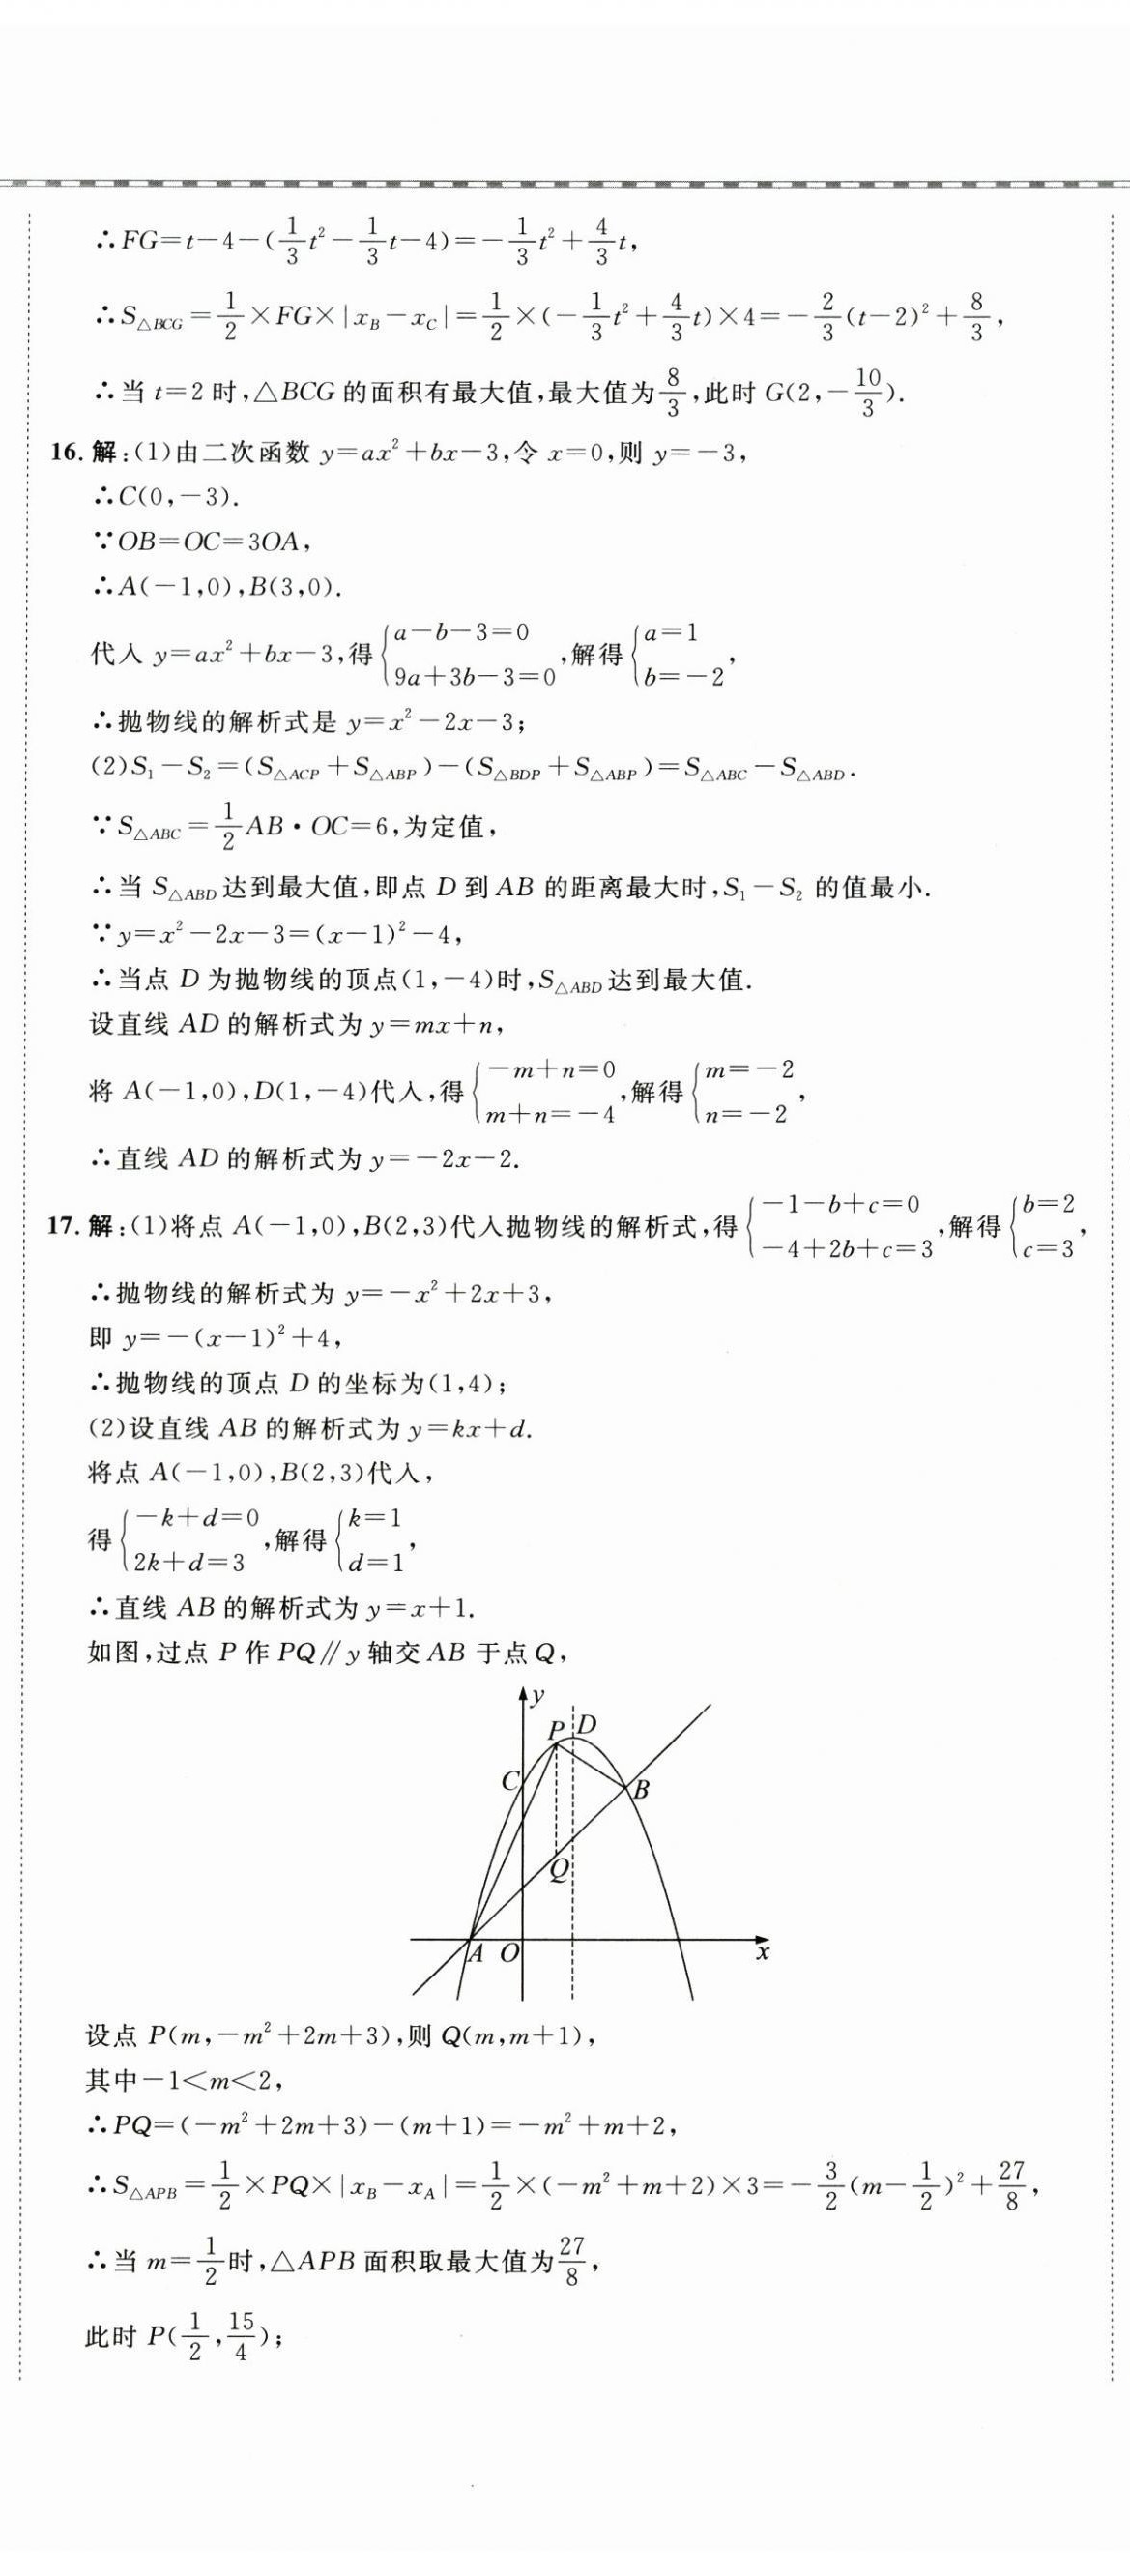 ∴FG=t-4-(1/3t²-1/3t-4)=-1/3t²+4/3t,
∴S△BCG=1/2×FG×|x_B-x_C|=1/2×(-1/3t²+4/3t)×4=-2/3(t-2)²+8/3,
∴当 t=2 时,△BCG 的面积有最大值,最大值为8/3,此时 G(2,-10/3).
16. 解:(1)由二次函数 y=ax²+bx-3,令 x=0,则 y=-3,
∴C(0,-3).
∵OB=OC=3OA,
∴A(-1,0),B(3,0).
代入 y=ax²+bx-3,得{a-b-3=0 9a+3b-3=0,解得{a=1 b=-2,
∴抛物线的解析式是 y=x²-2x-3;
(2)S₁-S₂=(S△ACP+S△ABP)-(S△BDP+S△ABP)=S△ABC-S△ABD.
∵S△ABC=1/2AB·OC=6,为定值,
∴当 S△ABD达到最大值,即点 D 到 AB 的距离最大时,S₁-S₂ 的值最小.
∵y=x²-2x-3=(x-1)²-4,
∴当点 D 为抛物线的顶点(1,-4)时,S△ABD达到最大值.
设直线 AD 的解析式为 y=mx+n,
将 A(-1,0),D(1,-4)代入,得{-m+n=0 m+n=-4,解得{m=-2 n=-2,
∴直线 AD 的解析式为 y=-2x-2.
17. 解:(1)将点 A(-1,0),B(2,3)代入抛物线的解析式,得{-1-b+c=0 -4+2b+c=3,解得{b=2 c=3,
∴抛物线的解析式为 y=-x²+2x+3,
即 y=-(x-1)²+4,
∴抛物线的顶点 D 的坐标为(1,4);
(2)设直线 AB 的解析式为 y=kx+d.
将点 A(-1,0),B(2,3)代入,
得{-k+d=0 2k+d=3,解得{k=1 d=1,
∴直线 AB 的解析式为 y=x+1.
如图,过点 P 作 PQ∥y 轴交 AB 于点 Q,
y
P D
C
B
Q
A O
x
设点 P(m,-m²+2m+3),则 Q(m,m+1),
其中-1<m<2,
∴PQ=(-m²+2m+3)-(m+1)=-m²+m+2,
∴S△APB=1/2×PQ×|x_B-x_A|=1/2×(-m²+m+2)×3=-3/2(m-1/2)²+27/8,
∴当 m=1/2时,△APB 面积取最大值为27/8,
此时 P(1/2,15/4);